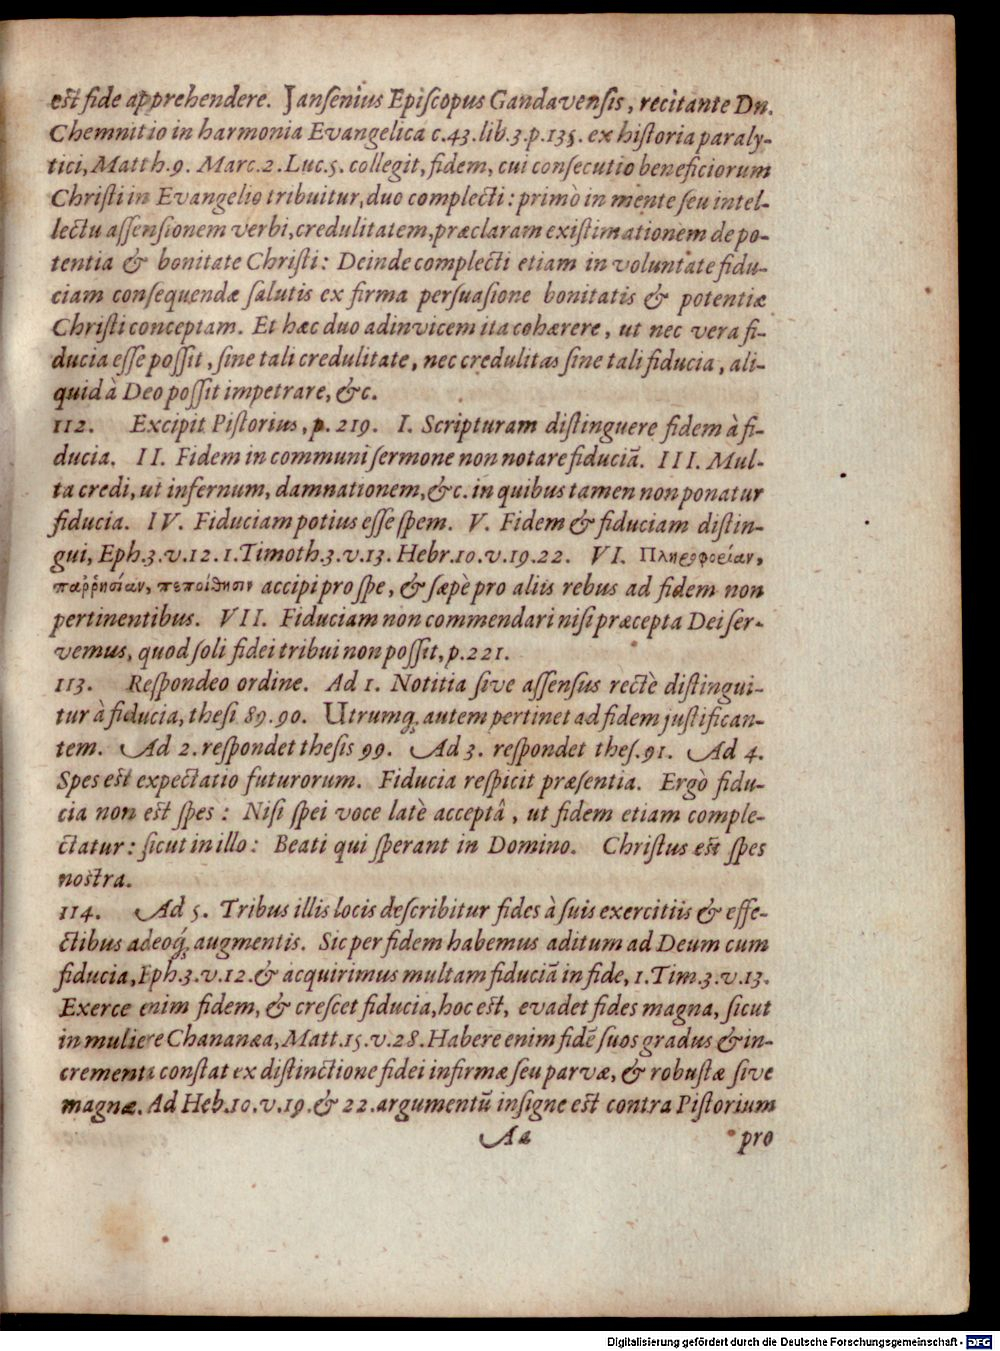 est fide apprehendere. Jansenius Episcopus Gandavensis, recitante Dn.
Chemnitio in harmonia Evangelica c.43.lib.3.p.135. ex historia paraly-
tici, Matth.9. Marc.2. Luc.5. collegit, fidem, cui consecutio beneficiorum
Christi in Evangelio tribuitur, duo complecti: primò in mente seu intel-
lectu assensionem verbi, credulitatem, præclaram existimationem de po-
tentia & bonitate Christi: Deinde complecti etiam in voluntate fidu-
ciam consequendæ salutis ex firma persuasione bonitatis & potentiæ
Christi conceptam. Et hæc duo adinvicem ita cohærere, ut nec vera fi-
ducia esse possit, sine tali credulitate, nec credulitas sine tali fiducia, ali-
quid à Deo possit impetrare, &c.
112. Excipit Pistorius, p. 219. I. Scripturam distinguere fidem à fi-
ducia. II. Fidem in communi sermone non notare fiduciã. III. Mul-
ta credi, ut infernum, damnationem, &c. in quibus tamen non ponatur
fiducia. IV. Fiduciam potius esse spem. V. Fidem & fiduciam distin-
gui, Eph.3.v.12. 1.Timoth.3.v.13. Hebr.10.v.19.22. VI. Πληροφορίαν,
παῤῥησίαν, πεποίθησιν accipi pro spe, & sæpè pro aliis rebus ad fidem non
pertinentibus. VII. Fiduciam non commendari nisi præcepta Dei ser-
vemus, quod soli fidei tribui non possit, p.221.
113. Respondeo ordine. Ad 1. Notitia sive assensus rectè distingui-
tur à fiducia, thesi 89.90. Utrumq; autem pertinet ad fidem justifican-
tem. Ad 2. respondet thesis 99. Ad 3. respondet thes.91. Ad 4.
Spes est expectatio futurorum. Fiducia respicit præsentia. Ergò fidu-
cia non est spes: Nisi spei voce latè acceptâ, ut fidem etiam comple-
ctatur: sicut in illo: Beati qui sperant in Domino. Christus est spes
nostra.
114. Ad 5. Tribus illis locis describitur fides à suis exercitiis & effe-
ctibus adeoq; augmentis. Sic per fidem habemus aditum ad Deum cum
fiducia, Eph.3.v.12. & acquirimus multam fiduciã in fide, 1.Tim.3.v.13.
Exerce enim fidem, & crescet fiducia, hoc est, evadet fides magna, sicut
in muliere Chananæa, Matt.15.v.28. Habere enim fidẽ suos gradus & in-
crementa constat ex distinctione fidei infirmæ seu parvæ, & robustæ sive
magnæ. Ad Heb.10.v.19. & 22. argumentũ insigne est contra Pistorium
Aa pro
Digitalisierung gefördert durch die Deutsche Forschungsgemeinschaft - DFG